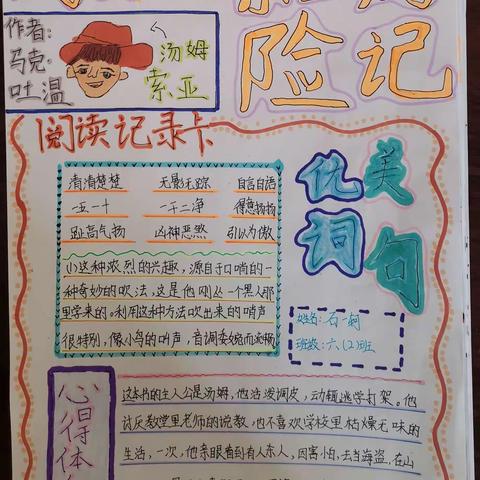 作者:
马克·
吐温
汤姆
索亚
险记
阅读记录卡
优美
词句
清清楚楚 无影无踪 自言自语
一五一十 一干二净 得意扬扬
趾高气扬 凶神恶煞 引以为傲
(1)这种浓烈的兴趣,源自于口哨的一
种奇妙的吹法,这是他刚丛一个黑人那
里学来的。利用这种方法吹出来的哨声
很特别,像小鸟的叫声,音调委婉而流畅
姓名:石一
班级:六、(2)班
心得体
这本书的主人公是汤姆,他活泼调皮,动辄逃学打架。他
讨厌教堂里老师的说教,也不喜欢学校里枯燥无味的
生活,一次,他亲眼看到有人杀人,因害怕,去当海盗,在山